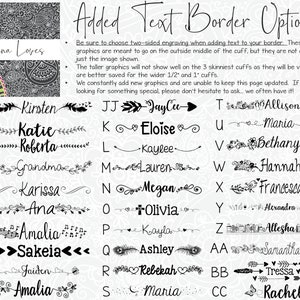 Added Text Border Optio
na Loves
• Be sure to choose two-sided engraving when adding text to your border. The
graphics are meant to go on the outside middle of the cuff, but they are not
just the image shown.
• The taller graphics will not show well on the 3 skinniest cuffs as they will be v
are better saved for the wider 1/2" and 1" cuffs.
• We constantly add new graphics and are unable to keep this page updated. If
looking for something special, please don't hesitate to ask... we often have it!
Kirsten JJ JayCee T Allison
Katie K Eloise U Maria
Roberta L Kaylee V Bethany
Grandma M Lauren W Hannah
Karissa N Megan X Francess
Ana O Olivia Y Alexandra
Amalia P Kayla Z Allesha
Sakeia Q Ashley AA Samantha
Jaiden R Rebekah BB Tressa
Amalia S Maria CC Rachel